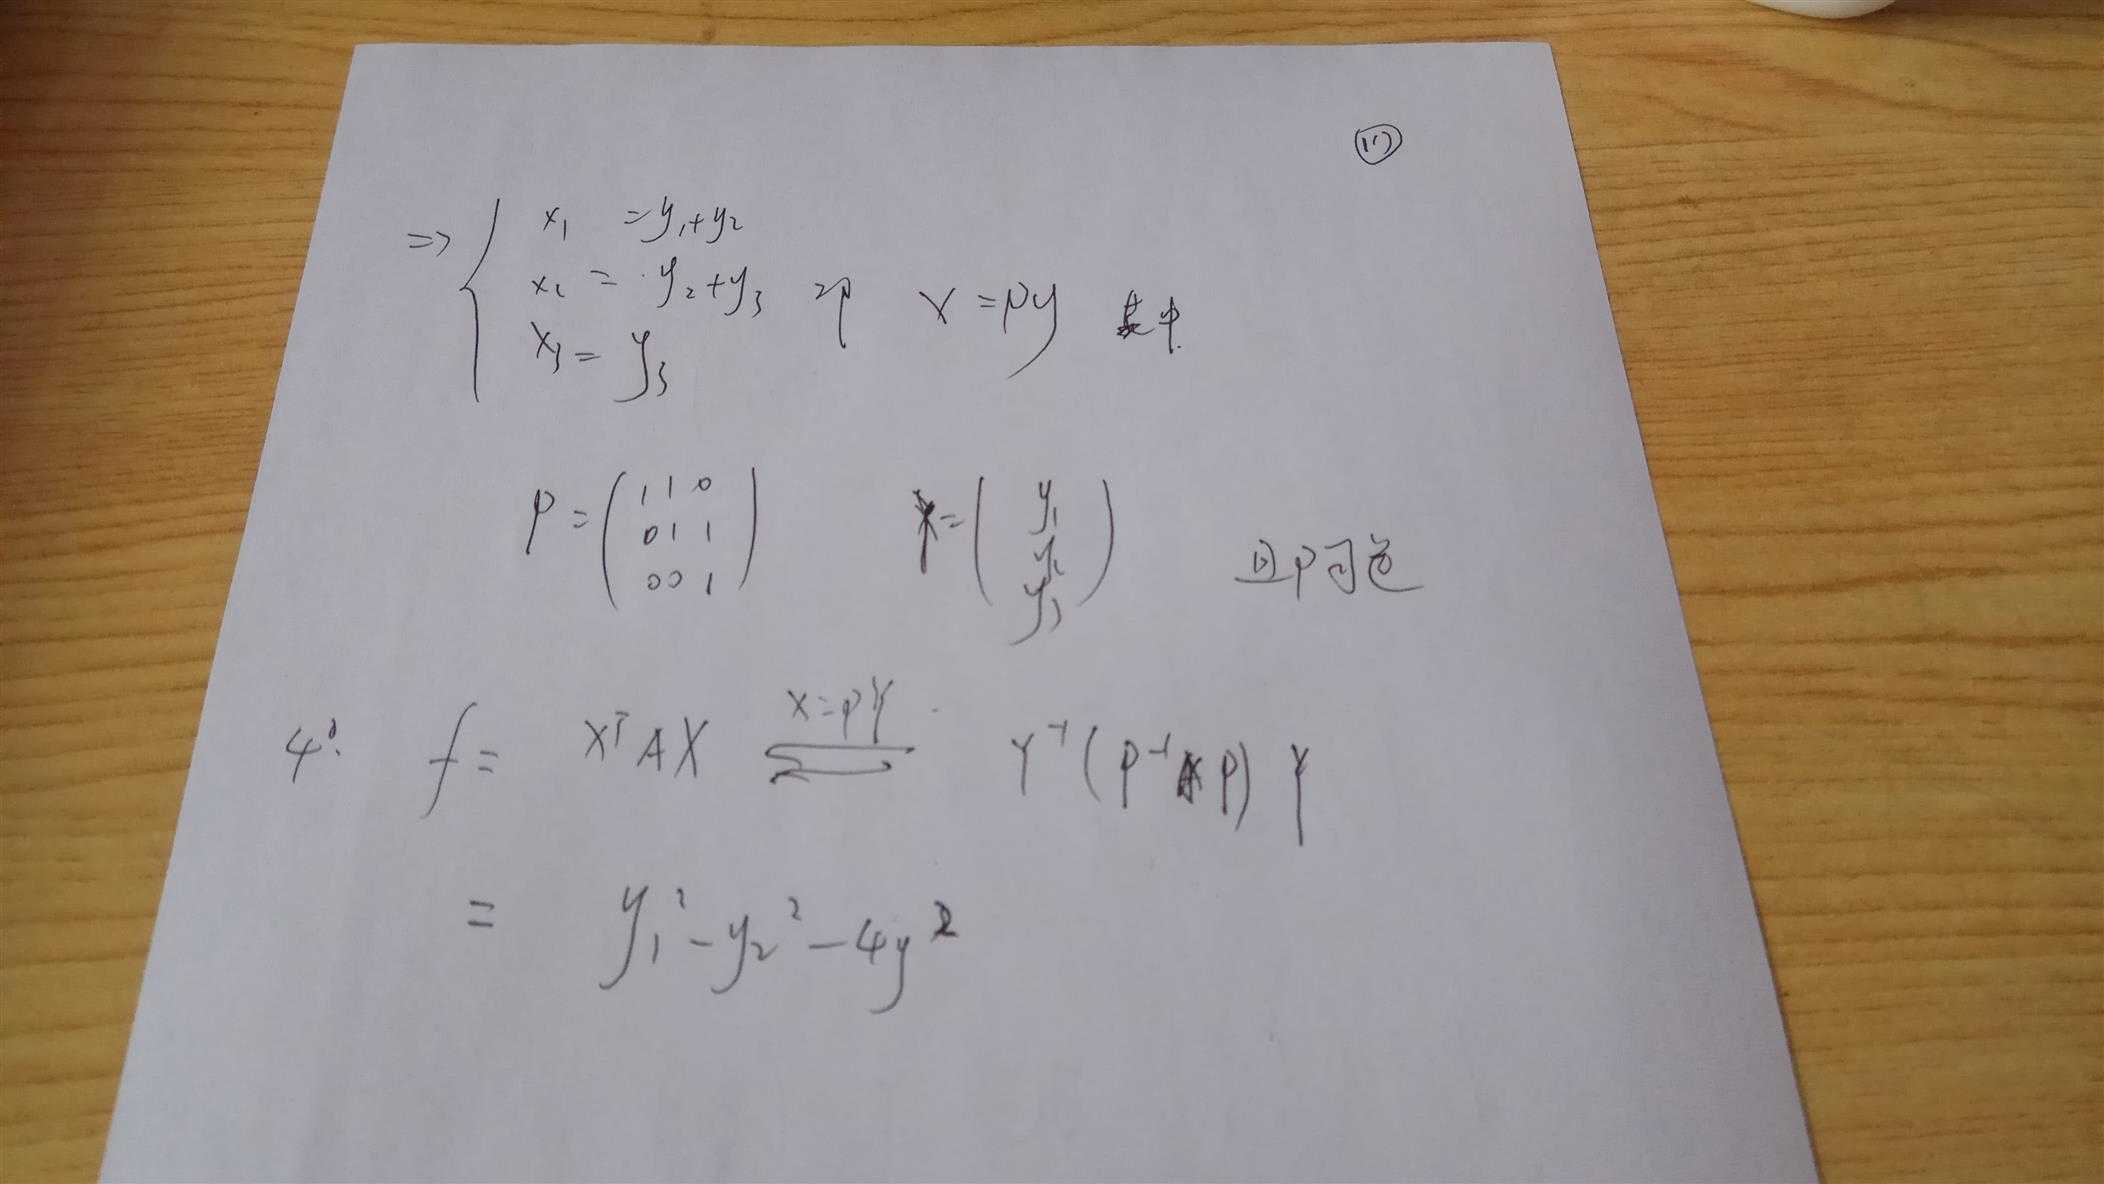 ⇒ { x₁ = y₁+y₂
x₂ = y₂+y₃ 即 X = PY 其中
x₃ = y₃
P = (1 1 0
0 1 1
0 0 1) Y = (y₁
y₂
y₃) 且P可逆
4° f = XᵀAX X=PY Y⁻¹(P⁻¹AP)Y
= y₁² - y₂² - 4y²